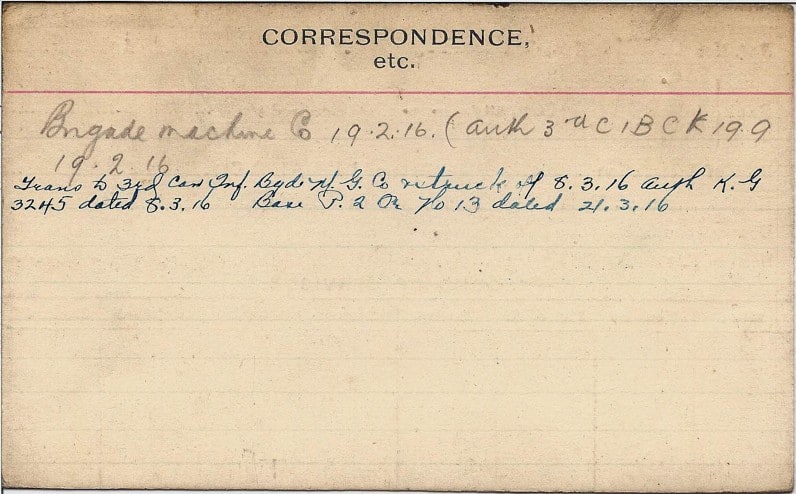 CORRESPONDENCE,
etc.
Brigade machine Co 19.2.16. (auth 3rd C I B C K 199
19.2.16
Trans to 3rd Can Inf. Bgde M. G. Co & struck off 8.3.16 auth K. G
3245 dated 8.3.16 Base P. 2 Or No 13 dated 21.3.16